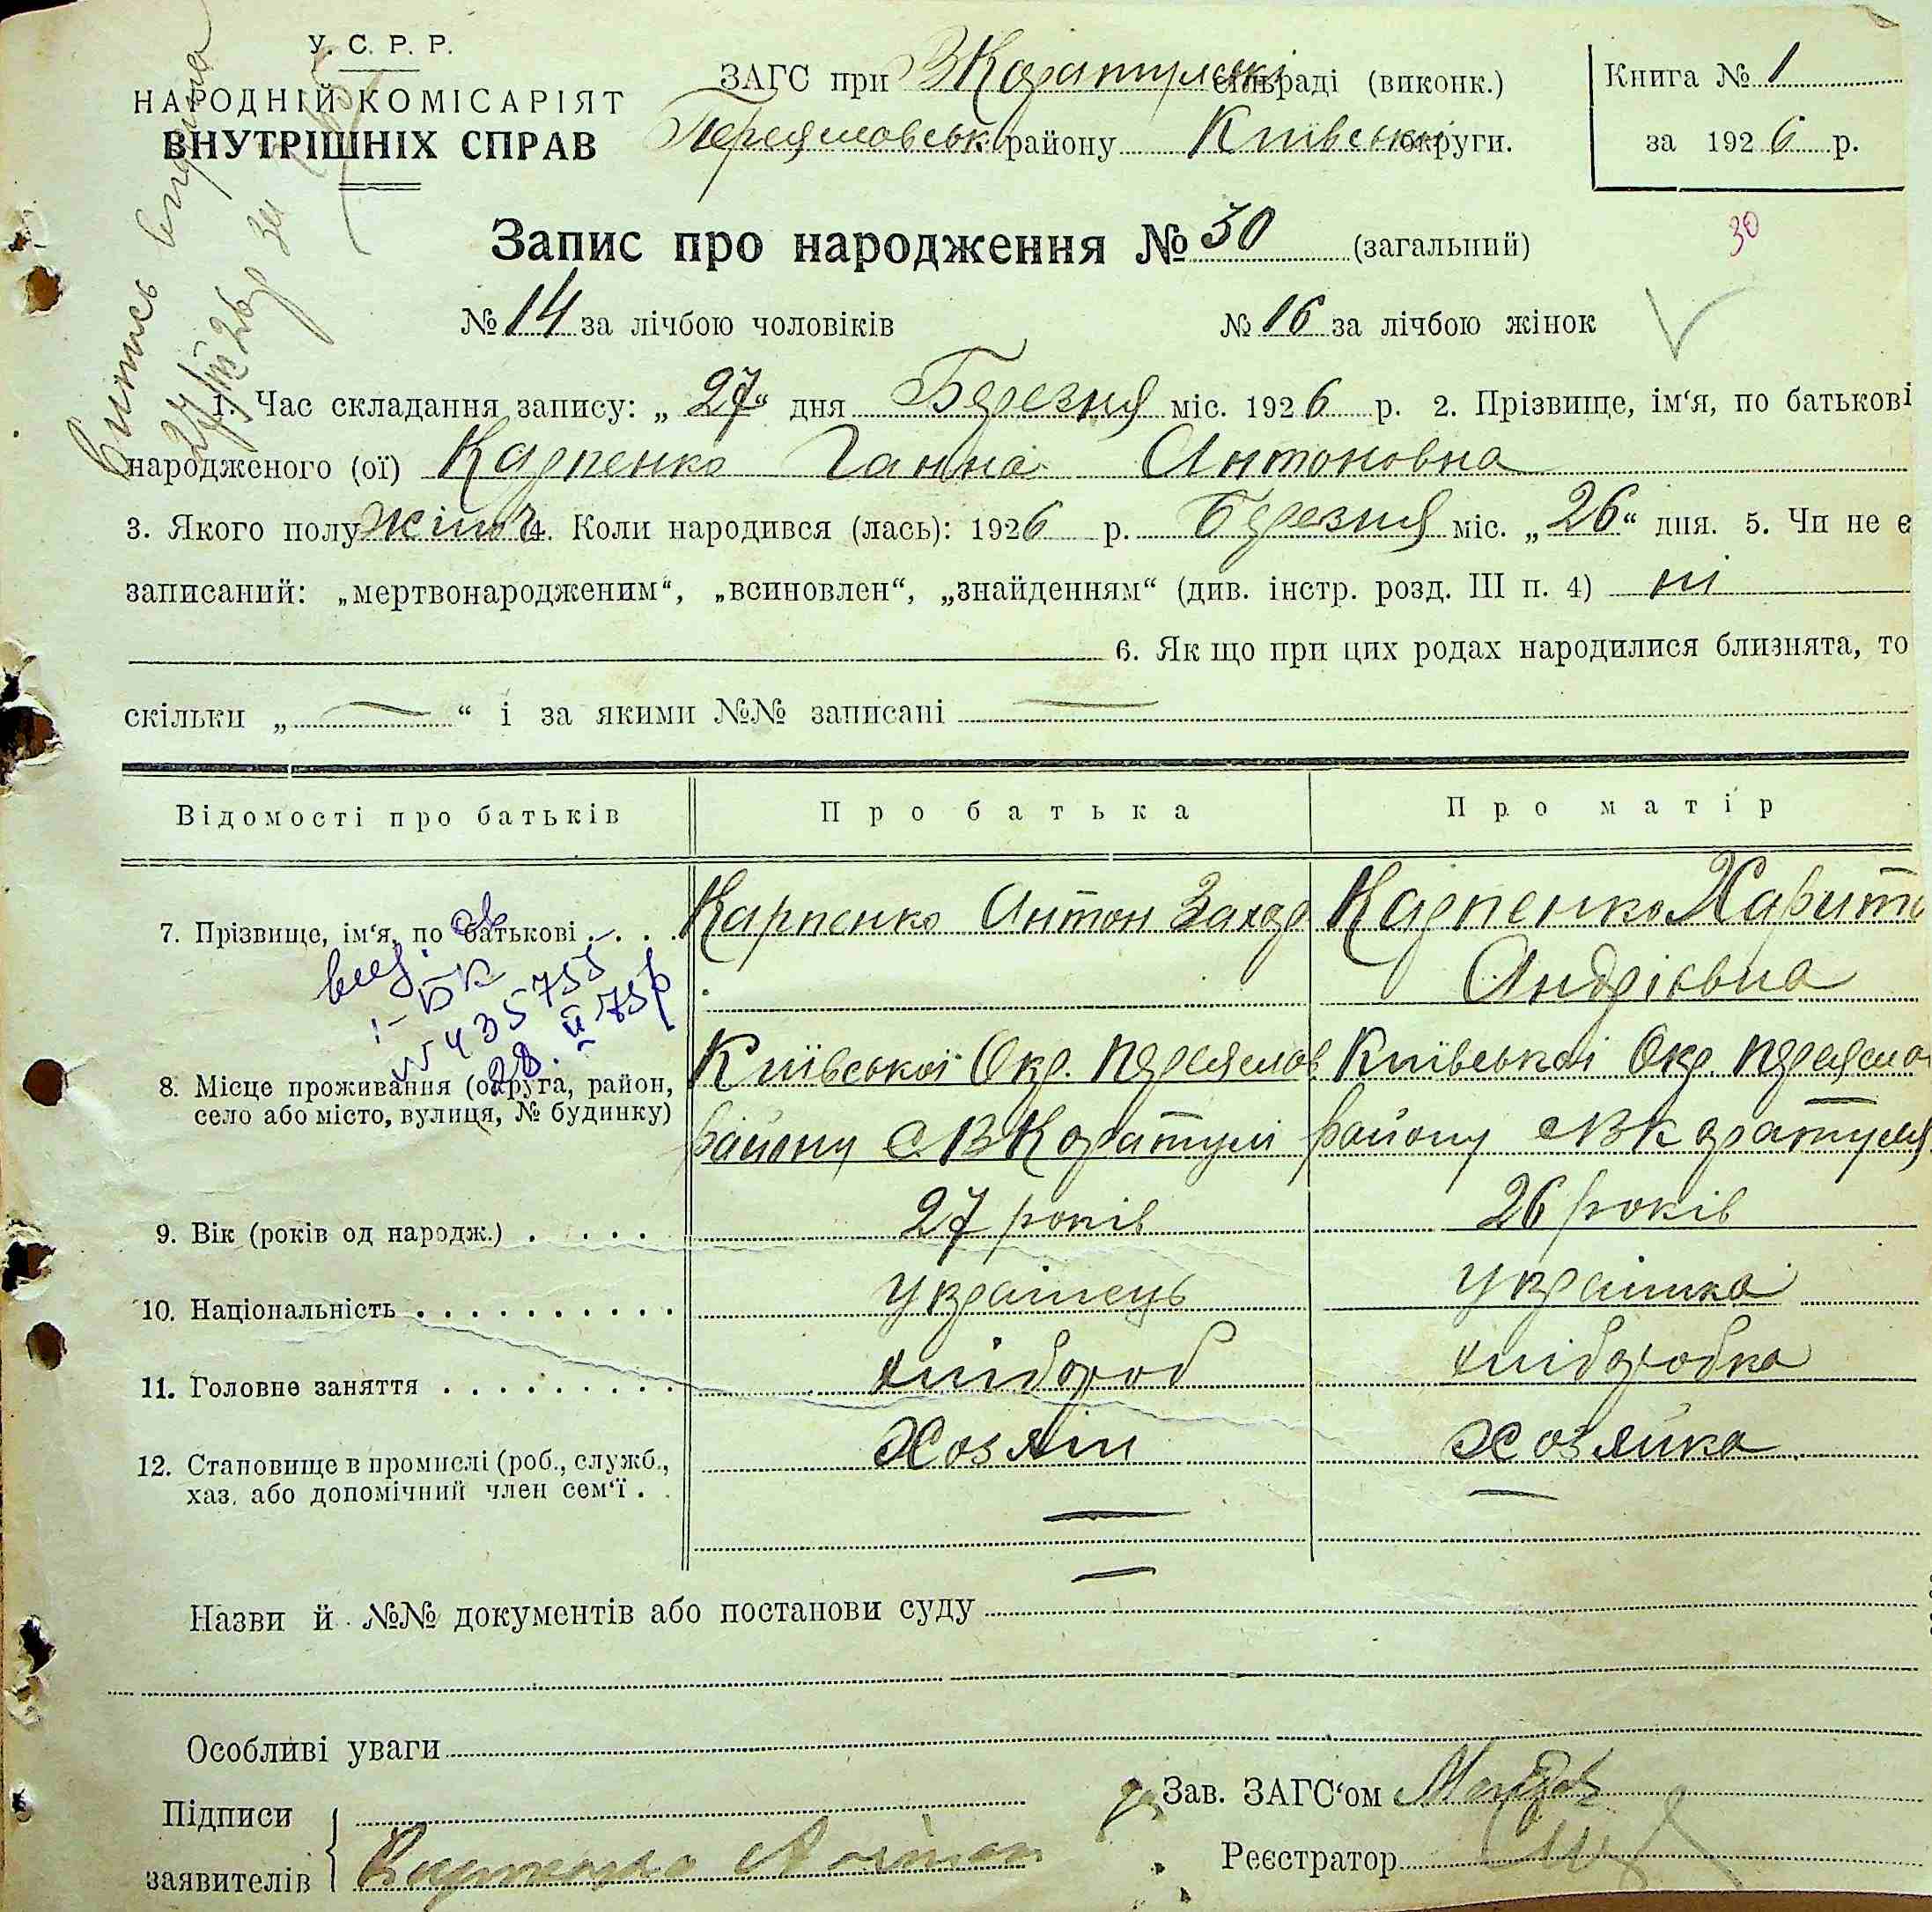 У. С. Р. Р.
НАРОДНІЙ КОМІСАРІЯТ
ВНУТРІШНІХ СПРАВ
ЗАГС при ВКаратульскі сільраді (виконк.)
Переяславськ району Київської округи.
Книга № 1
за 1926 р.
Запис про народження № 30 (загальний)
30
№ 14 за лічбою чоловіків № 16 за лічбою жінок
Витись
27/III 26 р за
1. Час складання запису: „27“ дня Березня міс. 1926 р. 2. Прізвище, ім‘я, по батькові
народженого (ої) Карпенко Ганна Антоновна
3. Якого полу жіноч 4. Коли народився (лась): 1926 р. Березня міс. „26“ дня. 5. Чи не є
записаний: „мертвонародженим“, „всиновлен“, „знайденням“ (див. інстр. розд. III п. 4) ні
6. Як що при цих родах народилися близнята, то
скільки „ — “ і за якими №№ записані —
Відомості про батьків Про батька Про матір
7. Прізвище, ім‘я, по батькові . . . . Карпенко Антон Захар Карпенко Харити
Андрієвна
св
I-БК
435755
28.II 75р
8. Місце проживання (округа, район,
село або місто, вулиця, № будинку)
Київської Окр. Переяслов Київської Окр. Переясло
району с ВКаратулі району с ВКаратуля
9. Вік (років од народж.) . . . . . 27 років 26 років
10. Національність . . . . . . . . . . Українець Українка
11. Головне заняття . . . . . . . . . хлібороб хліборобка
12. Становище в промислі (роб., служб.,
хаз. або допомічний член сем‘ї . .
Хозяін хозяйка
Назви й №№ документів або постанови суду
Особливі уваги
Підписи
заявителів Карпенко Антон
Зав. ЗАГС‘ом
Реєстратор